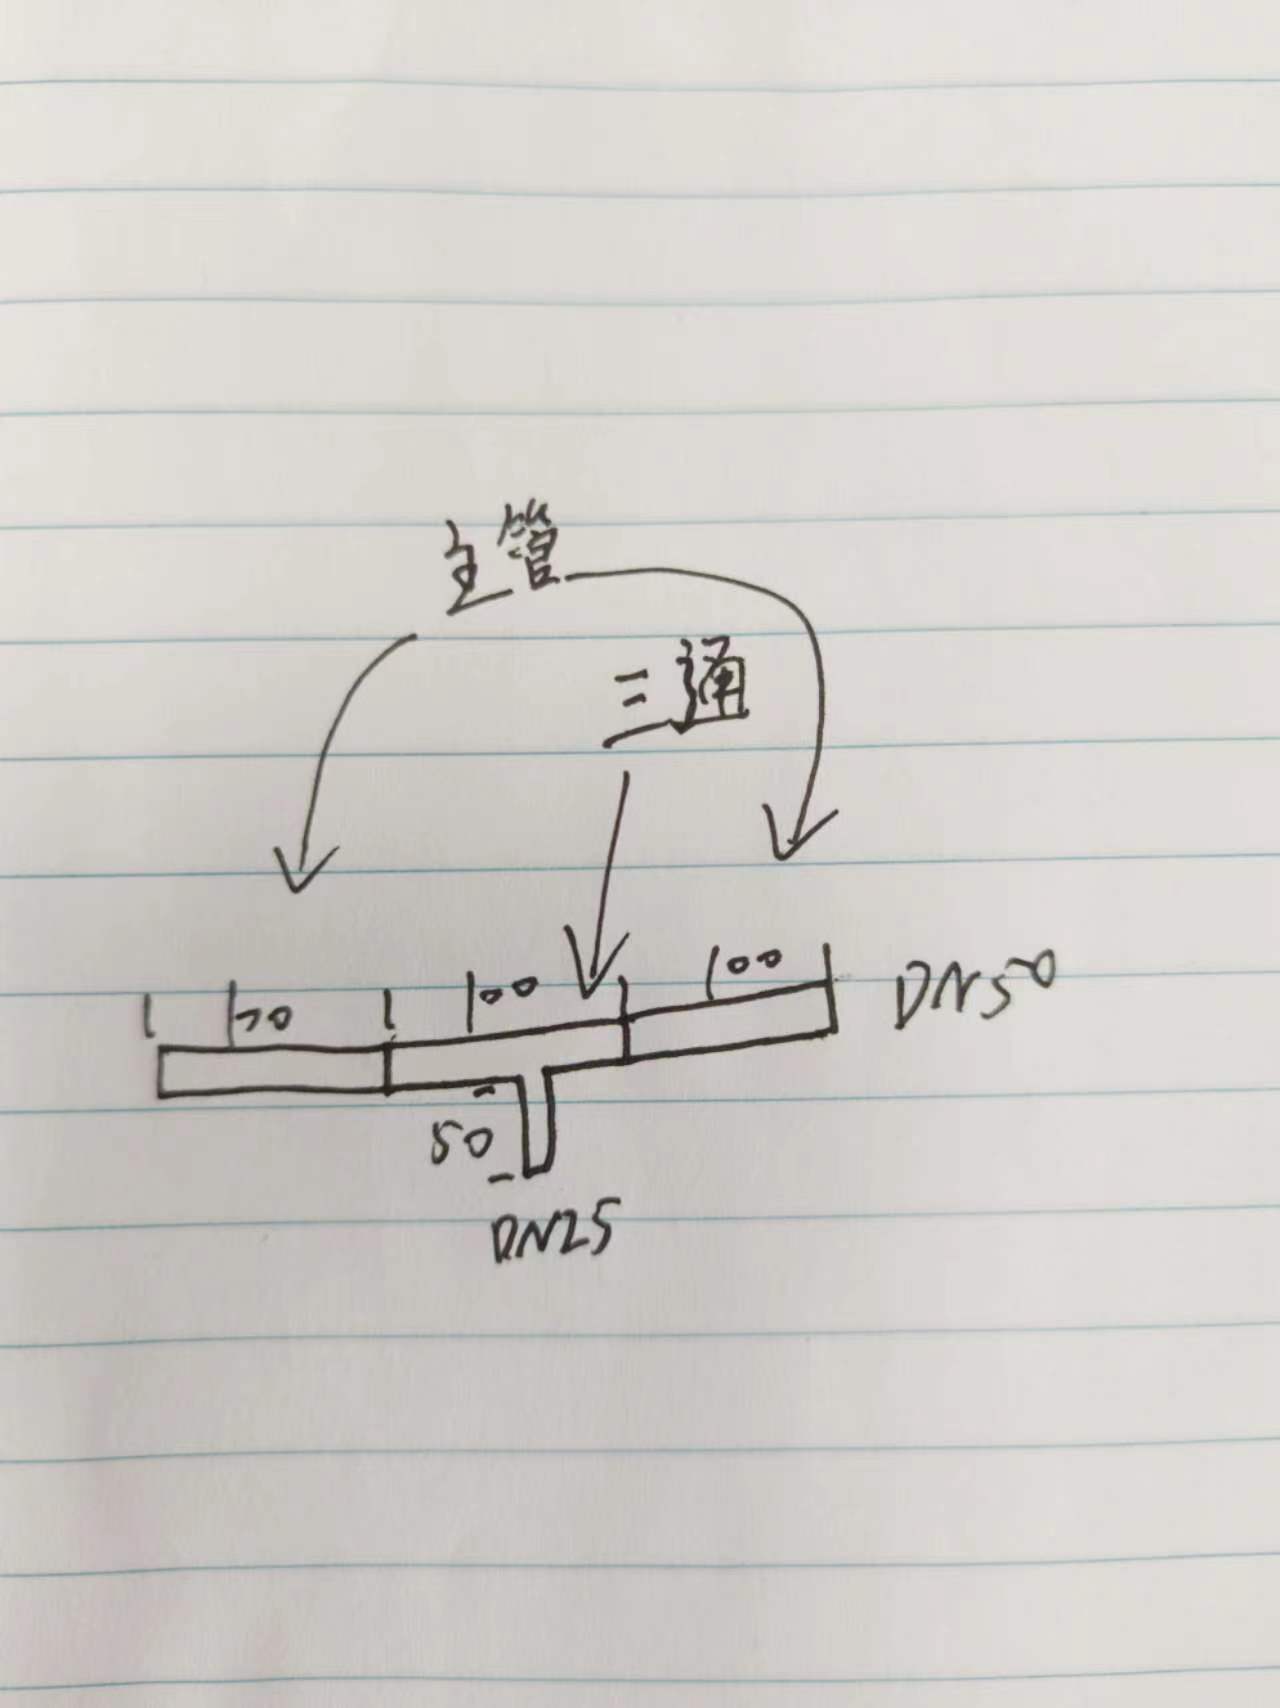 主管
三通
100 100 100 DN50
50
DN25